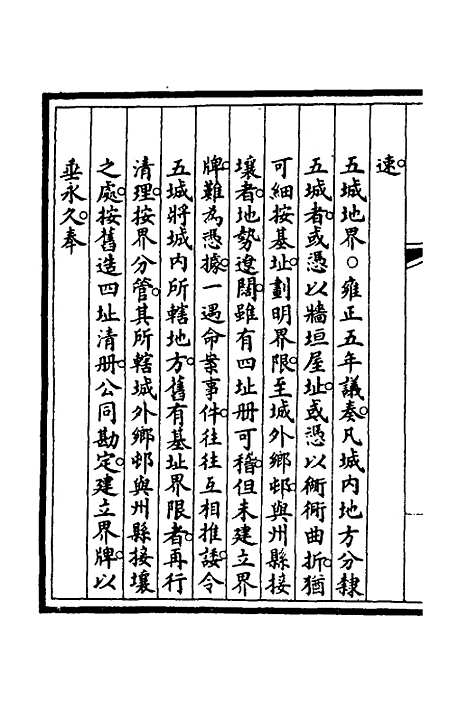 速。
五城地界○雍正五年議奏。凡城內地方分隸
五城者。或憑以牆垣屋址。或憑以衚衕曲折。猶
可細按基址。劃明界限。至城外鄉邨與州縣接
壤者。地勢遼闊。雖有四址册可稽。但未建立界
牌。難為憑據。一遇命案事件。往往互相推諉。令
五城將城內所轄地方。舊有基址界限者。再行
清理。按界分管。其所轄城外鄉邨與州縣接壤
之處。按舊造四址清册。公同勘定。建立界牌。以
垂永久。奉